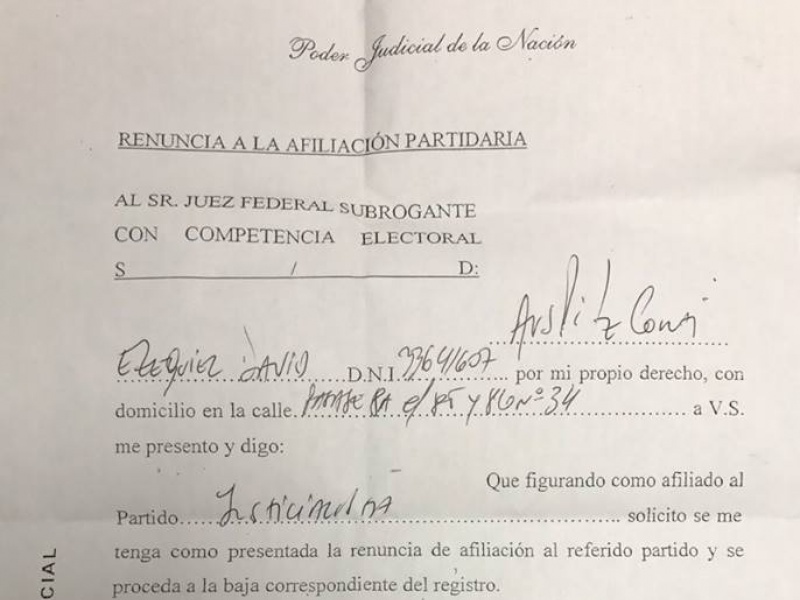 Poder Judicial de la Nación
RENUNCIA A LA AFILIACIÓN PARTIDARIA
AL SR. JUEZ FEDERAL SUBROGANTE
CON COMPETENCIA ELECTORAL
S / D:
EZEQUIEL DAVID D.N.I. 33641607 por mi propio derecho, con
domicilio en la calle e/ 85 y 86 Nº 34 a V.S.
me presento y digo:
Que figurando como afiliado al
Partido Justicialista solicito se me
tenga como presentada la renuncia de afiliación al referido partido y se
proceda a la baja correspondiente del registro.
CIAL